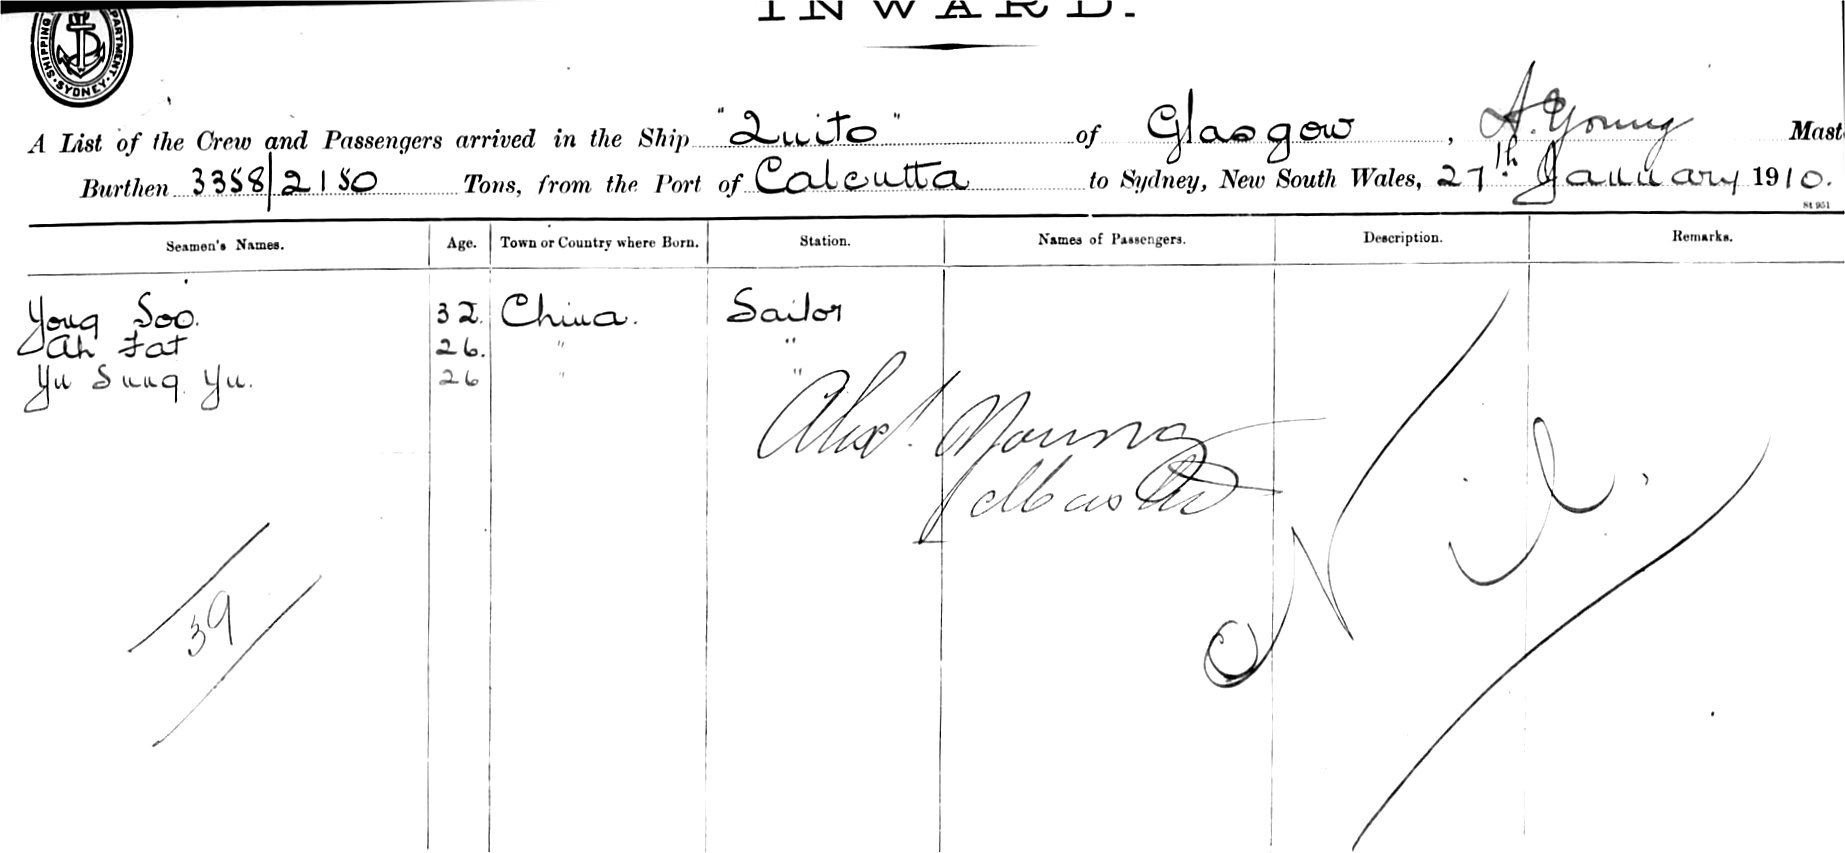 INWARD.
SHIPPING DEPARTMENT. SYDNEY.
A List of the Crew and Passengers arrived in the Ship "Quito" of Glasgow, A. Young Mast
Burthen 3358/2150 Tons, from the Port of Calcutta to Sydney, New South Wales, 27th January 1910.
St 951
Seamen's Names. Age. Town or Country where Born. Station. Names of Passengers. Description. Remarks.
Yong Soo. 32. China. Sailor
Ah Fat 26. " "
Yu Sung Yu. 26 " "
Alexr. Young
Master
Nil.
39